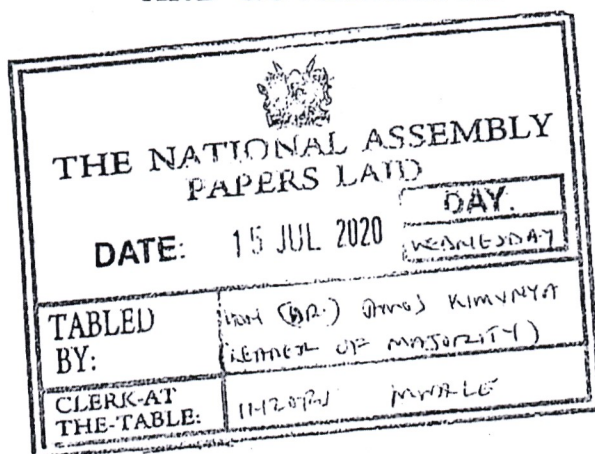 THE NATIONAL ASSEMBLY
PAPERS LAID
DATE: 15 JUL 2020
DAY:
WEDNESDAY
TABLED BY:
HON (DR.) AMOS KIMUNYA
(LEADER OF MAJORITY)
CLERK-AT
THE-TABLE:
MWALE